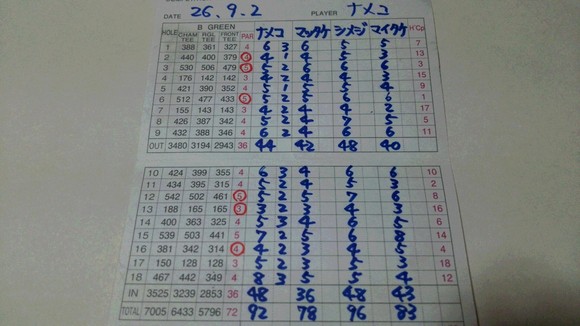 DATE 26.9.2 PLAYER ナメコ
HOLE B GREEN PAR ナメコ マッタケ シメジ マイタケ H'Cp
CHAM TEE RGL TEE FRONT TEE
1 388 361 327 4 6 3 6 5 5 7
2 440 400 379 4 4 1 4 5 4 13
3 530 506 479 5 5 2 6 6 5 3
4 176 142 142 3 4 2 4 4 3 15
5 421 390 352 4 5 1 5 5 4 9
6 512 477 433 5 5 2 5 6 6 1
7 155 143 143 3 4 2 4 4 2 17
8 426 387 342 4 5 2 4 7 5 5
9 432 388 346 4 6 2 4 6 6 11
OUT 3480 3194 2943 36 44 42 48 40
10 424 399 355 4 6 3 4 6 6 10
11 434 394 315 4 5 2 4 5 3 2
12 542 502 461 5 5 2 5 7 6 8
13 188 165 165 3 3 2 3 4 3 16
14 400 363 325 4 5 3 4 6 5 6
15 539 503 441 5 7 2 5 6 8 14
16 381 342 314 4 4 2 3 4 5 4
17 150 128 128 3 5 3 3 5 3 18
18 467 442 349 4 8 3 5 5 4 12
IN 3525 3239 2853 36 48 36 48 43
TOTAL 7005 6433 5796 72 92 78 96 83